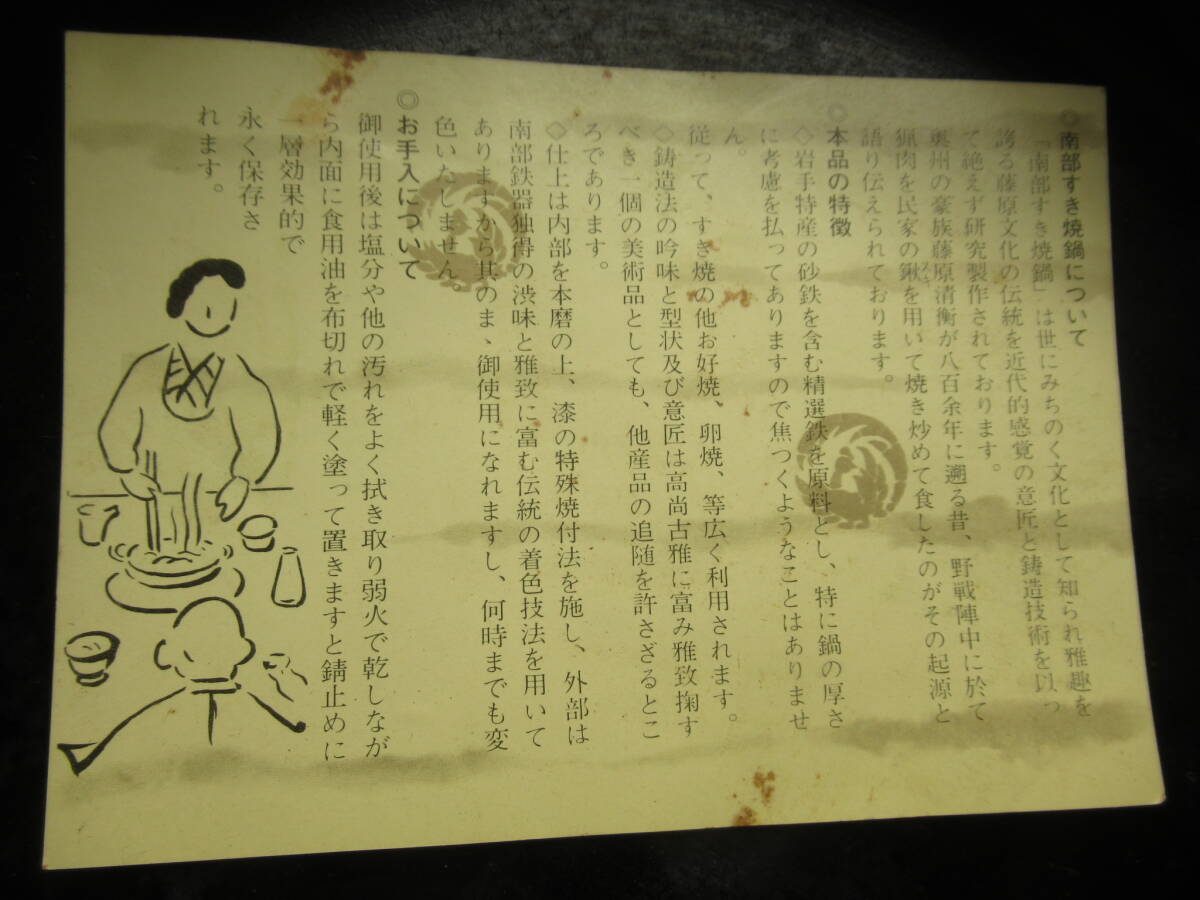 ◎南部すき焼鍋について
「南部すき焼鍋」は世にみちのく文化として知られ雅趣を
誇る藤原文化の伝統を近代的感覚の意匠と鋳造技術を以っ
て絶えず研究製作されております。
奥州の豪族藤原清衡が八百余年に遡る昔、野戦陣中に於て
猟肉を民家の鍬を用いて焼き炒めて食したのがその起源と
語り伝えられております。
◎本品の特徴
◇岩手特産の砂鉄を含む精選鉄を原料とし、特に鍋の厚さ
に考慮を払ってありますので焦つくようなことはありませ
ん。
従って、すき焼の他お好焼、卵焼、等広く利用されます。
◇鋳造法の吟味と型状及び意匠は高尚古雅に富み雅致掬す
べき一個の美術品としても、他産品の追随を許さざるとこ
ろであります。
◇仕上は内部を本磨の上、漆の特殊焼付法を施し、外部は
南部鉄器独得の渋味と雅致に富む伝統の着色技法を用いて
ありますから其のまゝ御使用になれますし、何時までも変
色いたしません
◎お手入について
御使用後は塩分や他の汚れをよく拭き取り弱火で乾しなが
ら内面に食用油を布切れで軽く塗って置きますと錆止めに
一層効果的で
永く保存さ
れます。